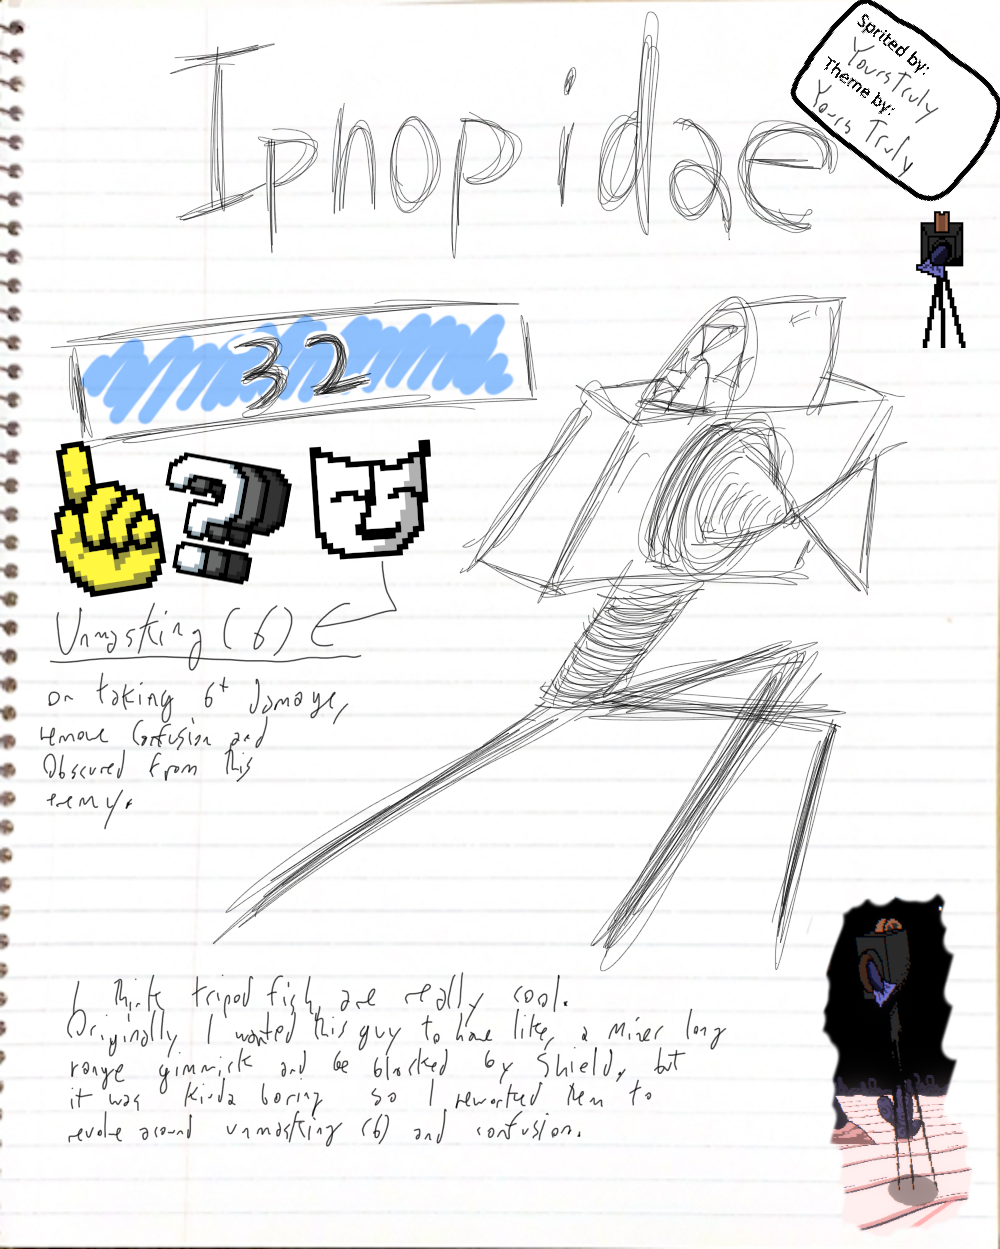 Ipnopidae
Sprited by:
Yours Truly
Theme by:
Yours Truly
32
?
Unmasking (6)
on taking 6+ damage,
remove Confusion and
Obscured from this
enemy.
I think tripod fish are really cool.
Originally I wanted this guy to have like, a Miner long
range gimmick and be blocked by Shield, but
it was kinda boring so I reworked them to
revolve around unmasking (6) and confusion.